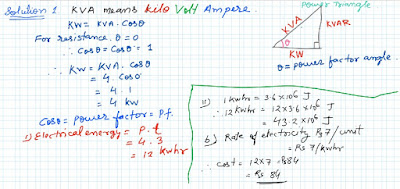 Solution 1 KVA means kilo Volt Ampere.
KW = KVA. Cosθ
For resistance, θ = 0
∴ Cosθ = Cos° = 1
∴ KW = KVA. Cosθ
= 4. Cos0
= 4. 1
= 4 KW
Cosθ = power factor = P.f.
i) Electrical energy = P. t
= 4. 3
= 12 KWhr
Power Triangle
KVA
KVAR
θ
KW
θ = power factor angle.
ii) 1 KWhr = 3.6 x 10⁶ J
∴ 12 KWhr = 12 x 3.6 x 10⁶ J
= 43.2 x 10⁶ J
b) Rate of electricity Rs 7/unit
= Rs 7/KWhr
∴ cost = 12x7 = Rs84
= Rs 84